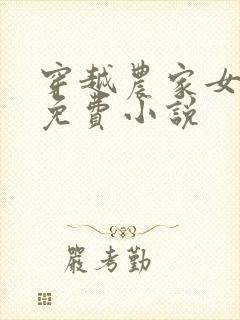 穿越農家女
免費小說
嚴考勤